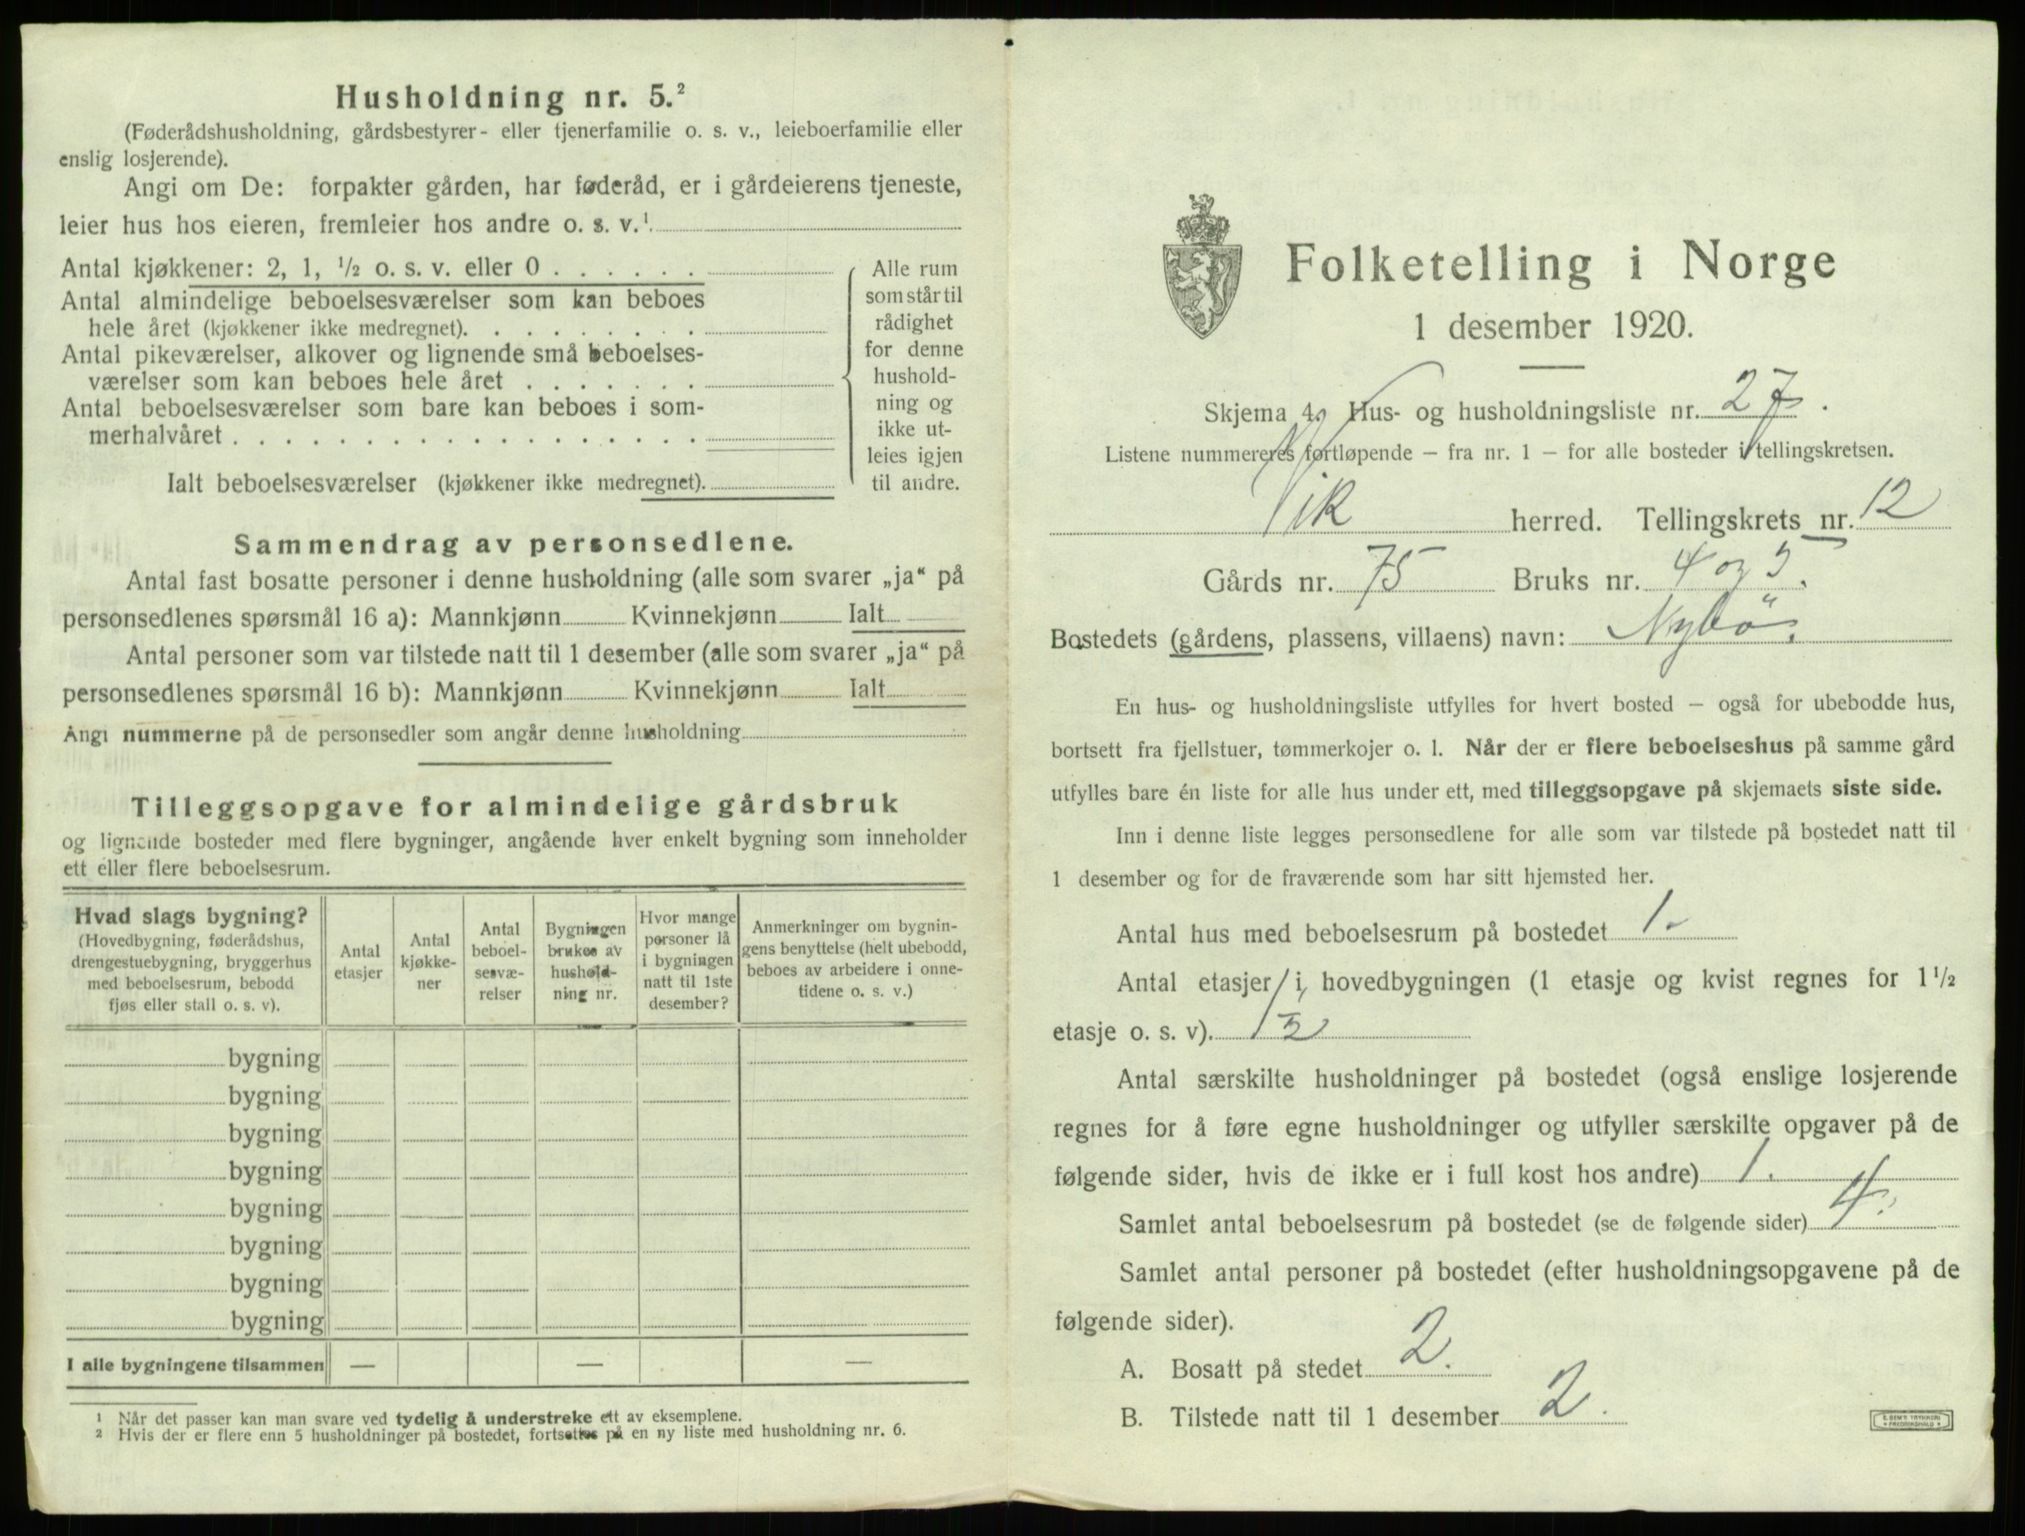 Husholdning nr. 5.²
(Føderådshusholdning, gårdsbestyrer- eller tjenerfamilie o. s. v., leieboerfamilie eller
enslig losjerende).
Angi om De: forpakter gården, har føderåd, er i gårdeierens tjeneste,
leier hus hos eieren, fremleier hos andre o. s. v.¹
Antal kjøkkener: 2, 1, ½ o. s. v. eller 0 . . . . . .
Antal almindelige beboelsesværelser som kan beboes
hele året (kjøkkener ikke medregnet). . . . . . . . .
Antal pikeværelser, alkover og lignende små beboelses-
værelser som kan beboes hele året . . . . . . .
Antal beboelsesværelser som bare kan beboes i som-
merhalvåret . . . . . . . . . . . . . . . . . .
Ialt beboelsesværelser (kjøkkener ikke medregnet).
Alle rum
som står til
rådighet
for denne
hushold-
ning og
ikke ut-
leies igjen
til andre.
Sammendrag av personsedlene.
Antal fast bosatte personer i denne husholdning (alle som svarer „ja“ på
personsedlenes spørsmål 16 a): Mannkjønn Kvinnekjønn Ialt
Antal personer som var tilstede natt til 1 desember (alle som svarer „ja“ på
personsedlenes spørsmål 16 b): Mannkjønn Kvinnekjønn Ialt
Angi nummerne på de personsedler som angår denne husholdning
Tilleggsopgave for almindelige gårdsbruk
og lignende bosteder med flere bygninger, angående hver enkelt bygning som inneholder
ett eller flere beboelsesrum.
Hvad slags bygning?
(Hovedbygning, føderådshus,
drengestuebygning, bryggerhus
med beboelsesrum, bebodd
fjøs eller stall o. s. v).
Antal
etasjer
Antal
kjøkke-
ner
Antal
beboel-
sesvæ-
relser
Bygningen
brukes av
hushold-
ning nr.
Hvor mange
personer lå
i bygningen
natt til 1ste
desember?
Anmerkninger om bygnin-
gens benyttelse (helt ubebodd,
beboes av arbeidere i onne-
tidene o. s. v.)
bygning
bygning
bygning
bygning
bygning
bygning
bygning
bygning
I alle bygningene tilsammen — — —
¹ Når det passer kan man svare ved tydelig å understreke ett av eksemplene.
² Hvis der er flere enn 5 husholdninger på bostedet, fortsettes på en ny liste med husholdning nr. 6.
Folketelling i Norge
1 desember 1920.
Skjema 4. Hus- og husholdningsliste nr. 27.
Listene nummereres fortløpende – fra nr. 1 – for alle bosteder i tellingskretsen.
Vik herred. Tellingskrets nr. 12
Gårds nr. 75 Bruks nr. 4 og 5.
Bostedets (gårdens, plassens, villaens) navn: Nybö.
En hus- og husholdningsliste utfylles for hvert bosted – også for ubebodde hus,
bortsett fra fjellstuer, tømmerkojer o. l. Når der er flere beboelseshus på samme gård
utfylles bare én liste for alle hus under ett, med tilleggsopgave på skjemaets siste side.
Inn i denne liste legges personsedlene for alle som var tilstede på bostedet natt til
1 desember og for de fraværende som har sitt hjemsted her.
Antal hus med beboelsesrum på bostedet 1.
Antal etasjer i hovedbygningen (1 etasje og kvist regnes for 1½
etasje o. s. v). 1½
Antal særskilte husholdninger på bostedet (også enslige losjerende
regnes for å føre egne husholdninger og utfyller særskilte opgaver på de
følgende sider, hvis de ikke er i full kost hos andre) 1.
Samlet antal beboelsesrum på bostedet (se de følgende sider) 4.
Samlet antal personer på bostedet (efter husholdningsopgavene på de
følgende sider).
A. Bosatt på stedet 2.
B. Tilstede natt til 1 desember 2.